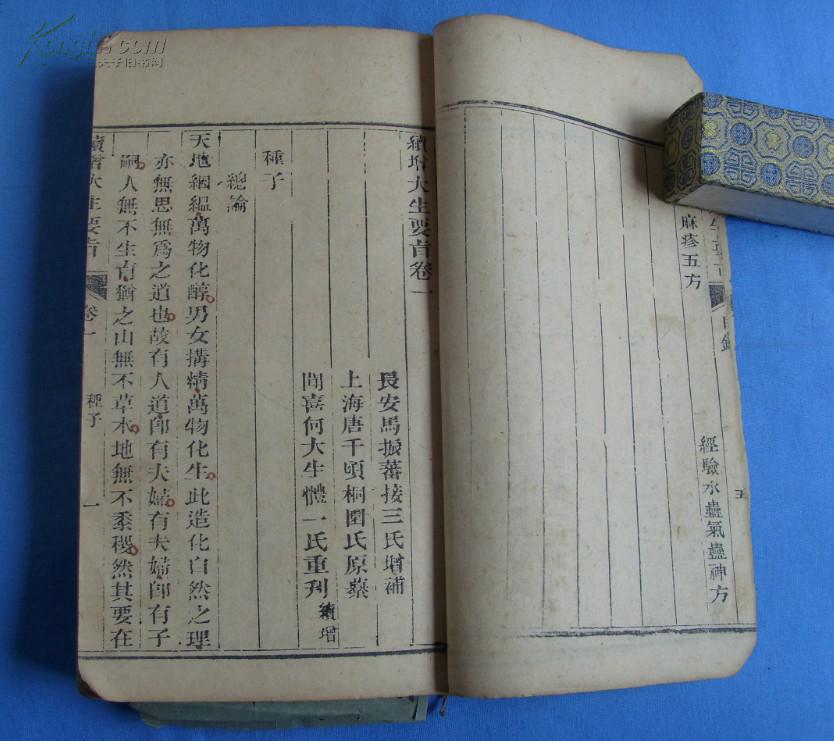 麻疹五方
經驗水蠱氣蠱神方
續增大生要旨卷一
長安馬振蕃接三氏增補
上海唐千頃桐園氏原纂
聞喜何大生體一氏重刋續增
種子
總論
天地絪緼萬物化醇男女搆精萬物化生此造化自然之理
亦無思無爲之道也故有人道卽有夫婦有夫婦卽有子
嗣人無不生育猶之山無不草木地無不黍稷然其要在
續增大生要旨
卷一
種子
一
Kongfz.com